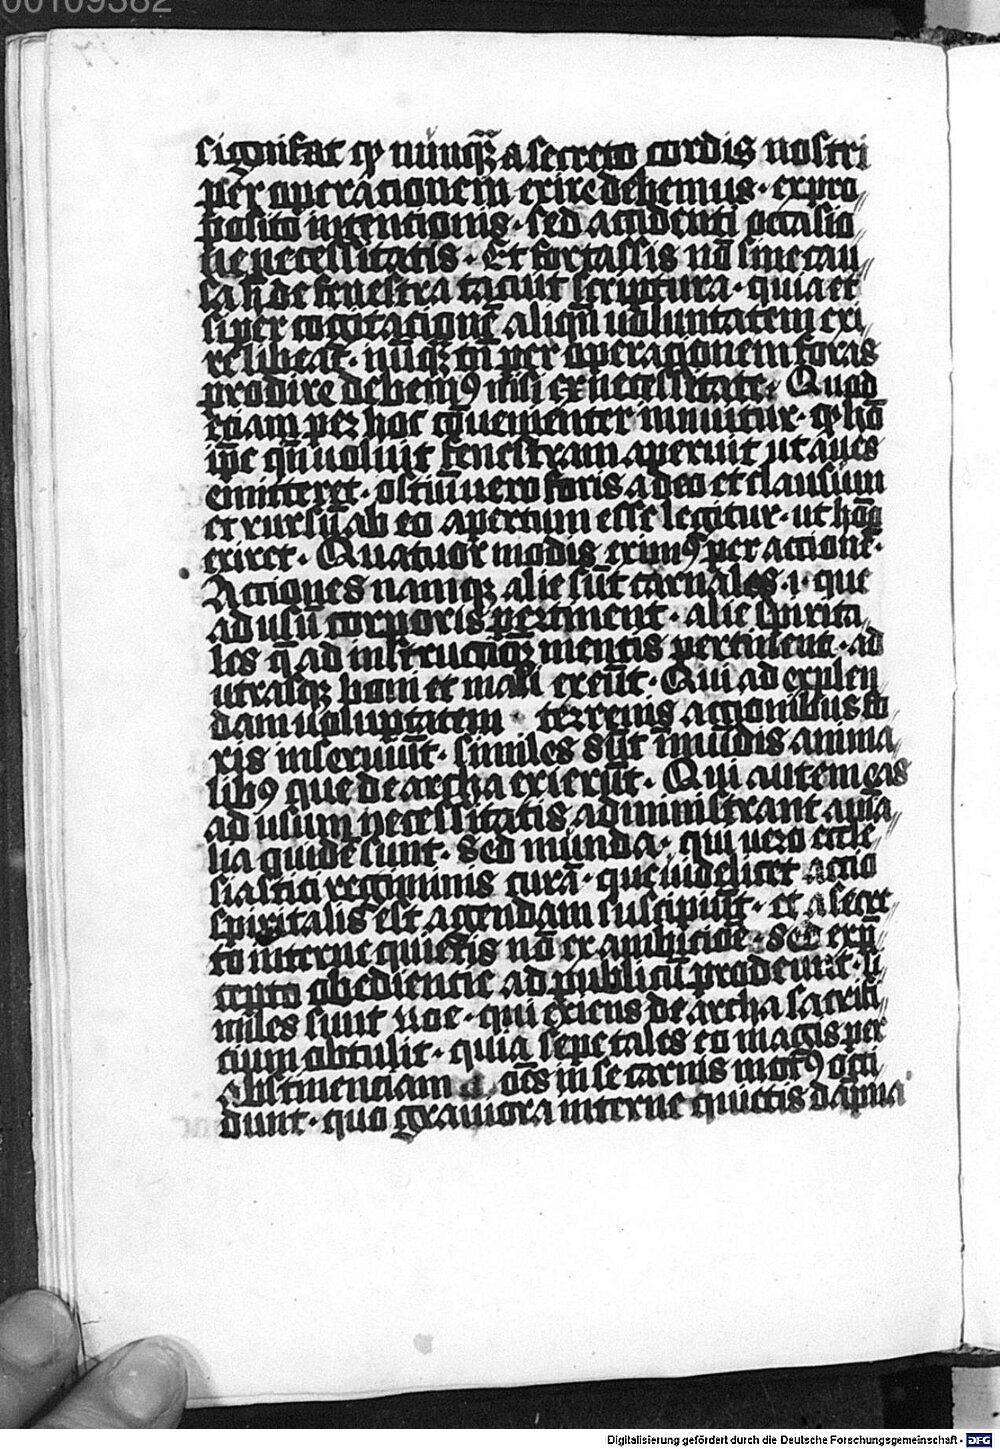 00109382
signifat qɔ nūnq̄ȝ a secreto cordis nostri
per operacionem exire debemus · ex pro
posito intencionis · sed accidenti occasio
ne necessitatis · Et fortassis nō sine cau
sa h̄ de fenestra tacuit scriptura · quia et
si per cogitacionē aliqn̄ uoluntatem exi
re libeat · nūqȝ tn̄ per operacionem foras
prodire debemꝰ nisi ex necessitate · Quod
etiam per hoc cōuenienter innuitur · qɔ hō
ip̄e qn̄ uoluit fenestram aperuit ut aues
emitteret · ostiū uero foris a deo et clausum
et rursū ab eo apertum esse legitur · ut homo
exiret · Quatuor modis eximꝰ per actionē ·
Actiones namqȝ alie sūt carnales · i · que
ad usū corporis pertinent · alie spirita
les q̄ ad instructionȝ mentis pertinent · ad
utrasqȝ boni et mali exeūt · Qui ad explen
dam uoluptatem terrenis actionibus fo
ris inseruiūt · similes sūt īmūdis anima
libꝰ que de archa exierūt · Qui autem eas
ad usum necessitatis administrant aīa
lia quidē sunt · Sed munda · qui uero eccle
siastici regiminis curā · que uidelicet actio
spiritalis est agendam suscipiūt · et a secre
to interne quietis nō ex ambicione · Sed ex p̄
cepto obediencie ad publicū prodeunt · si
miles sunt noe · qui exiens de archa sacrifi
cium obtulit · quia sepe tales eo magis per
abstinenciam oēs in se carnis motꝰ occi
dunt · quo grauiora interne quietis dāpna
Digitalisierung gefördert durch die Deutsche Forschungsgemeinschaft - DFG